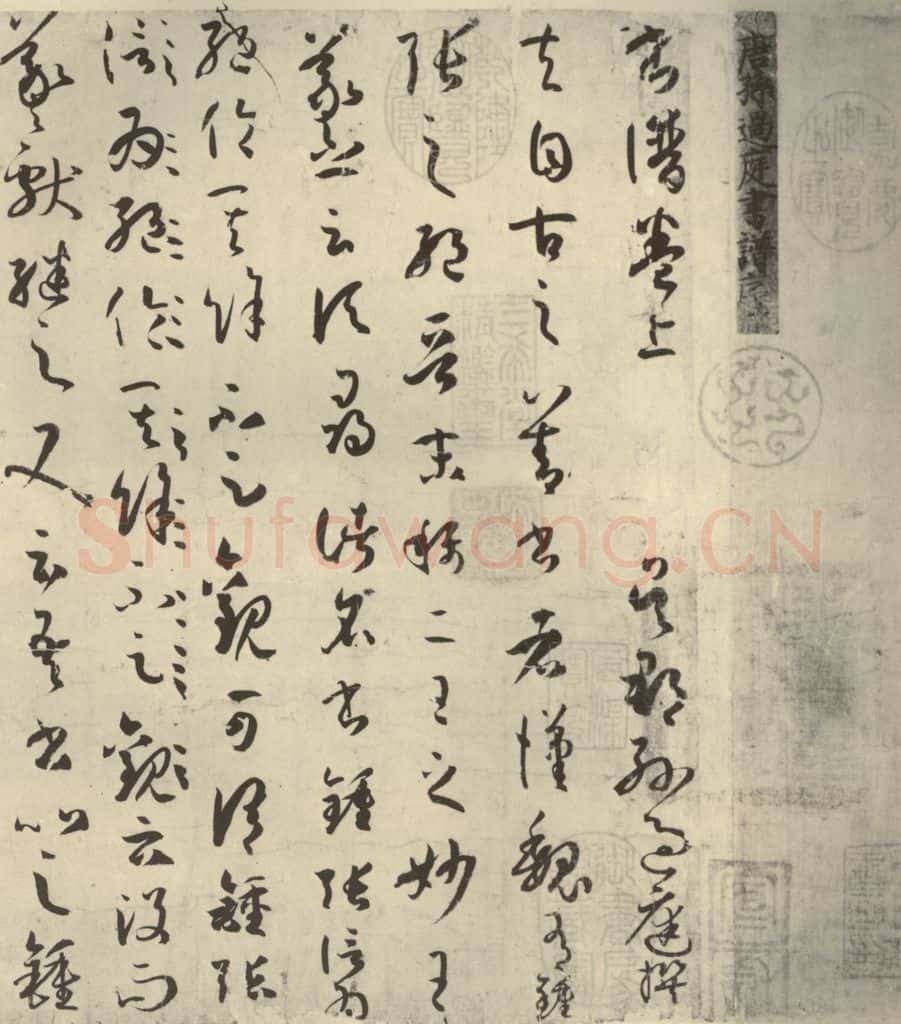 唐孫過庭書譜序
書譜卷上 吳郡孫過庭撰
夫自古之善書者漢魏有鍾
張之絕晉末稱二王之妙王
羲之云頃尋諸名書鍾張信為
絕倫其餘不足觀可謂鍾張
信為絕倫其餘不足觀云沒而
羲獻繼之又云吾書比之鍾
Shufawang.CN